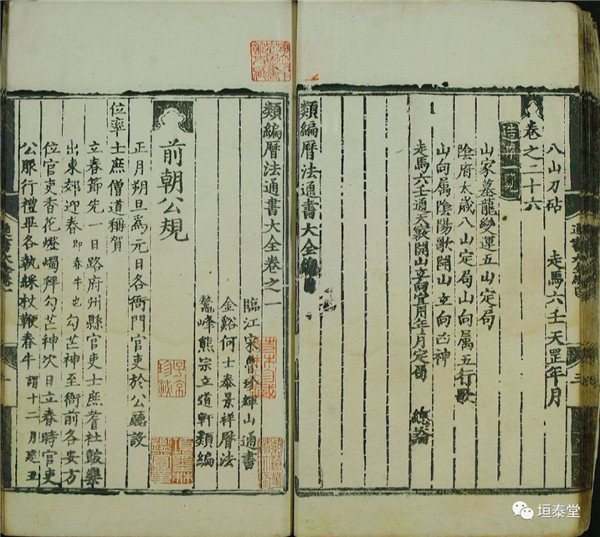 八山刀砧　走馬六壬天罡年月
卷之二十六
山家墓龍變運五山定局
陰府太歲八山定局山向属五行歌
山向属陰陽歌開山立向凶神
走馬六壬通天竅開山立向宜用年月定局　總論
類編曆法通書大全
類編曆法通書大全卷之一
臨江宋魯珍輝山通書
金谿何士泰景祥曆法
鰲峰熊宗立道軒類編
前朝公規
正月朔旦為元日各衙門官吏於公廳設
位率士庶僧道稱賀
立春節先一日路府州縣官吏士庶耆社鼓樂
出東郊迎春即春牛也勾芒神至衙前各安方
位官吏香花燈燭拜勾芒神次日立春時官吏
公服行禮畢各執綵杖鞭春牛謂十二月建丑
垣泰堂